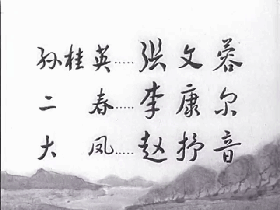 孙桂英.....张文蓉
二春.....李康尔
大凤.....赵抒音